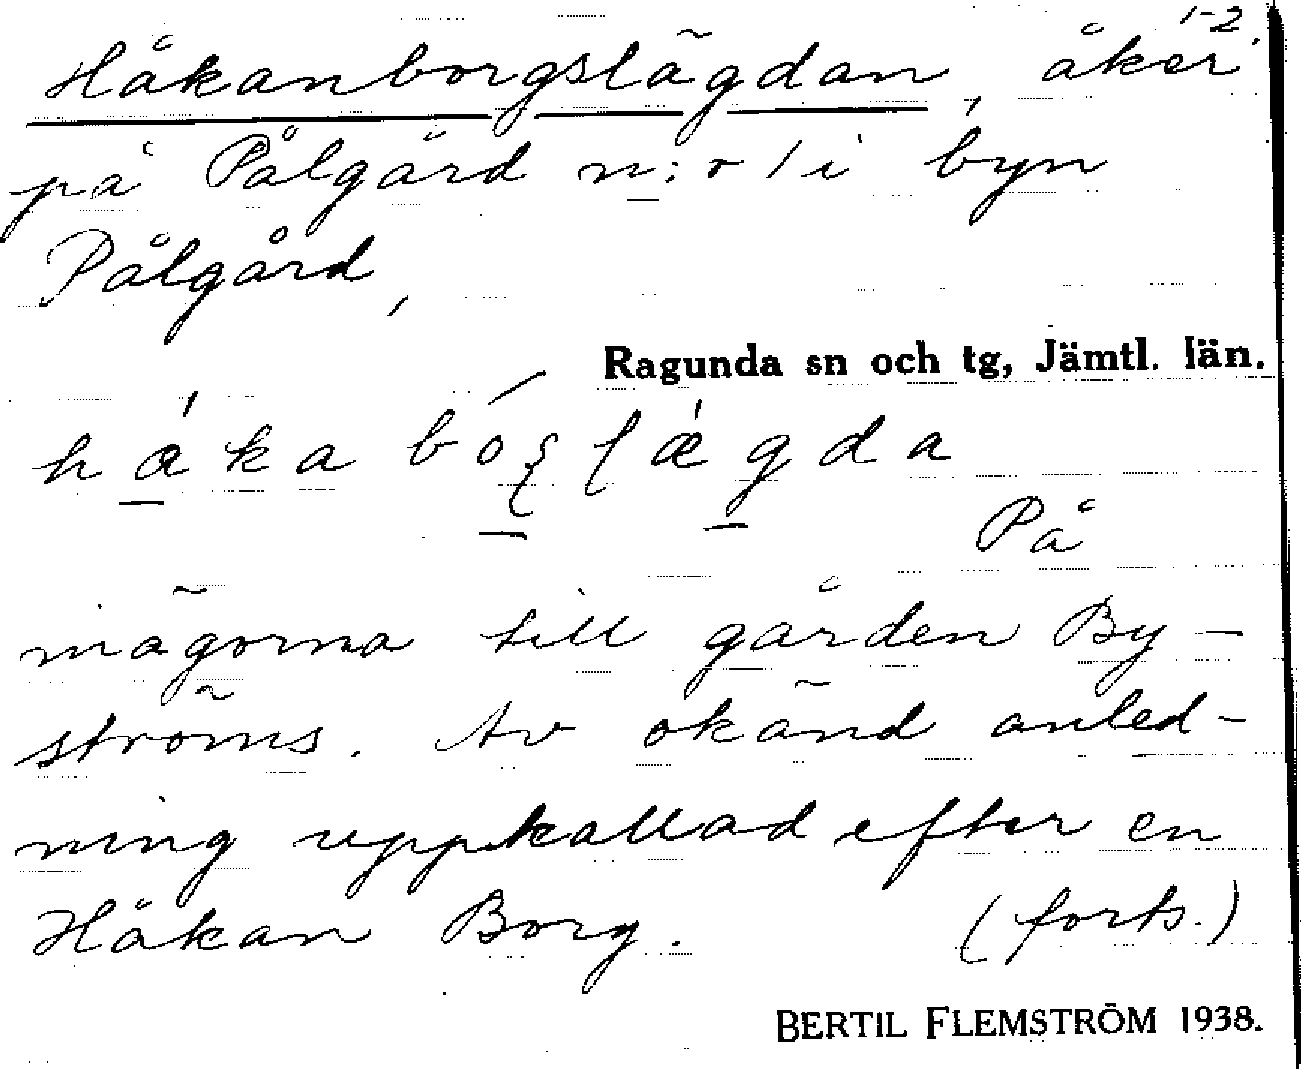 1-2.
Håkanborgslägdan, åker
på Pålgård n:r 1 i byn
Pålgård,
Ragunda sn och tg, Jämtl. län.
hæka bóslægda
På
inägorna till gården By-
ströms. Av okänd anled-
ning uppkallad efter en
Håkan Borg. (forts.)
BERTIL FLEMSTRÖM 1938.